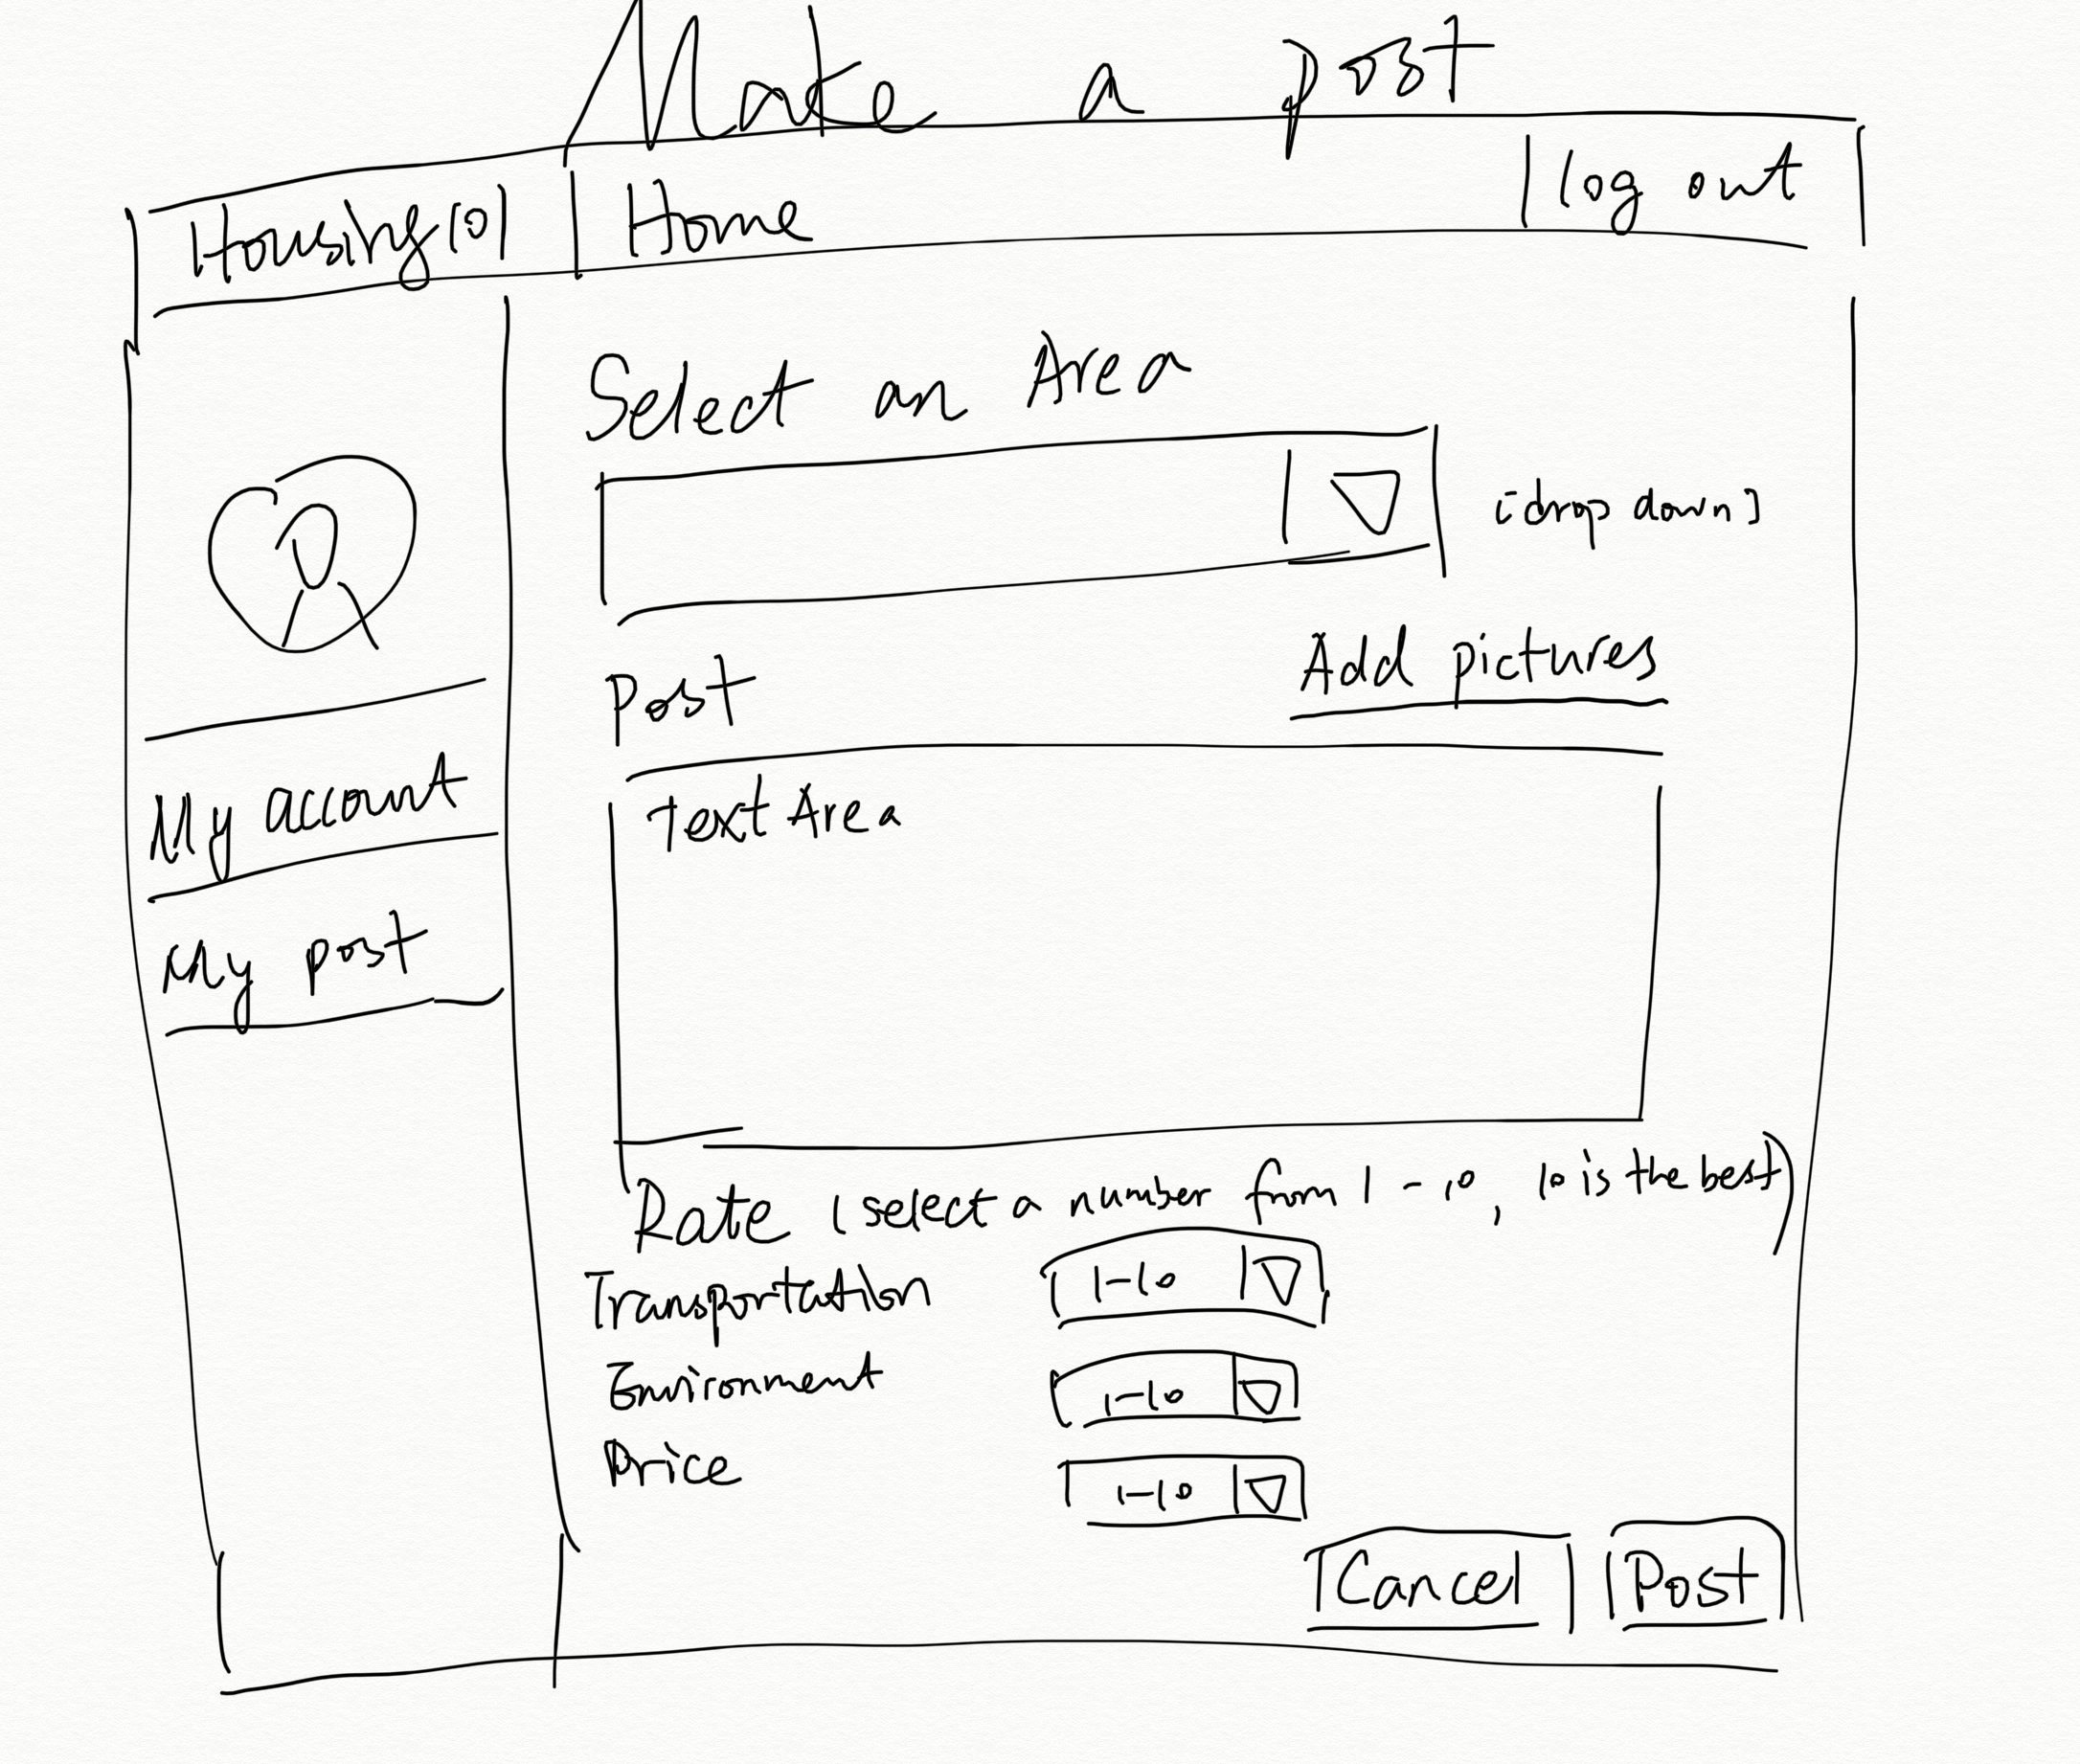 Make a post
Housing101 Home log out
Select an Area
[drop down]
Post Add pictures
Text Area
My account
My post
Rate (select a number from 1-10, 10 is the best)
Transportation 1-10
Environment 1-10
Price 1-10
Cancel Post